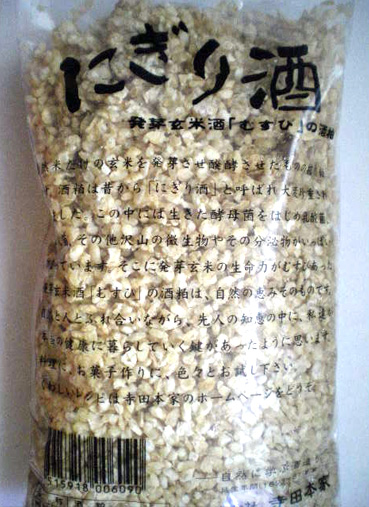 にぎり酒
発芽玄米酒「むすひ」の酒粕
然米だけの玄米を発芽させ醗酵させたものの
酒粕は昔から「にぎり酒」と呼ばれ大変
ました。この中には生きた酵母菌をはじめ乳酸菌
その他沢山の微生物やその分泌物がいっぱい
ています。そこに発芽玄米の生命力がむすびあった
芽玄米酒「むすひ」の酒粕は、自然の恵みそのものです
と人とふれ合いながら、先人の知恵の中に、私達
の健康に暮らしていく鍵があったように思います
料理に、お菓子作りに、色々とお試し下さい。
わしいレシピは寺田本家のホームページをどうぞ。
515918 006090
自然に学ぶ酒造り
寺田本家